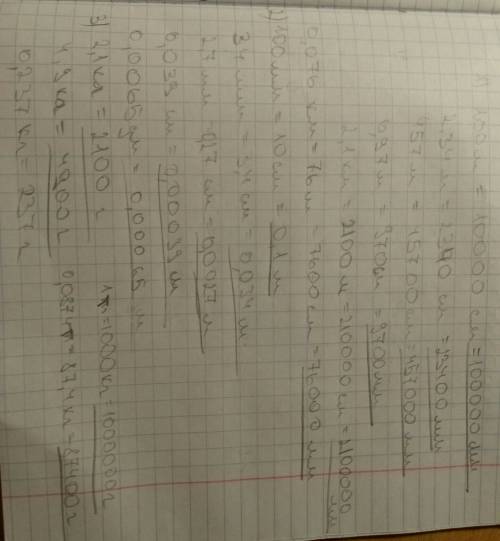 100 м = 10000 см = 100000 мм
2,34 м = 2340 см = 23400 мм
457 м = 15700 см = 457000 мм
0,97 м = 970 см = 9700 мм
2,1 км = 2100 м = 210000 см = 2100000 мм
0,076 км = 76 м = 7600 см = 76000 мм
2) 100 мм = 10 см = 0,1 м
34 мм = 3,4 см = 0,034 м
2,7 мм = 0,27 см = 0,0027 м
0,039 см = 0,00039 м
0,0065 дм = 0,00065 м
3) 2,1 кг = 2100 г
1 т = 1000 кг = 1000000 г
4,9 кг = 4900 г
0,237 кг = 237 г